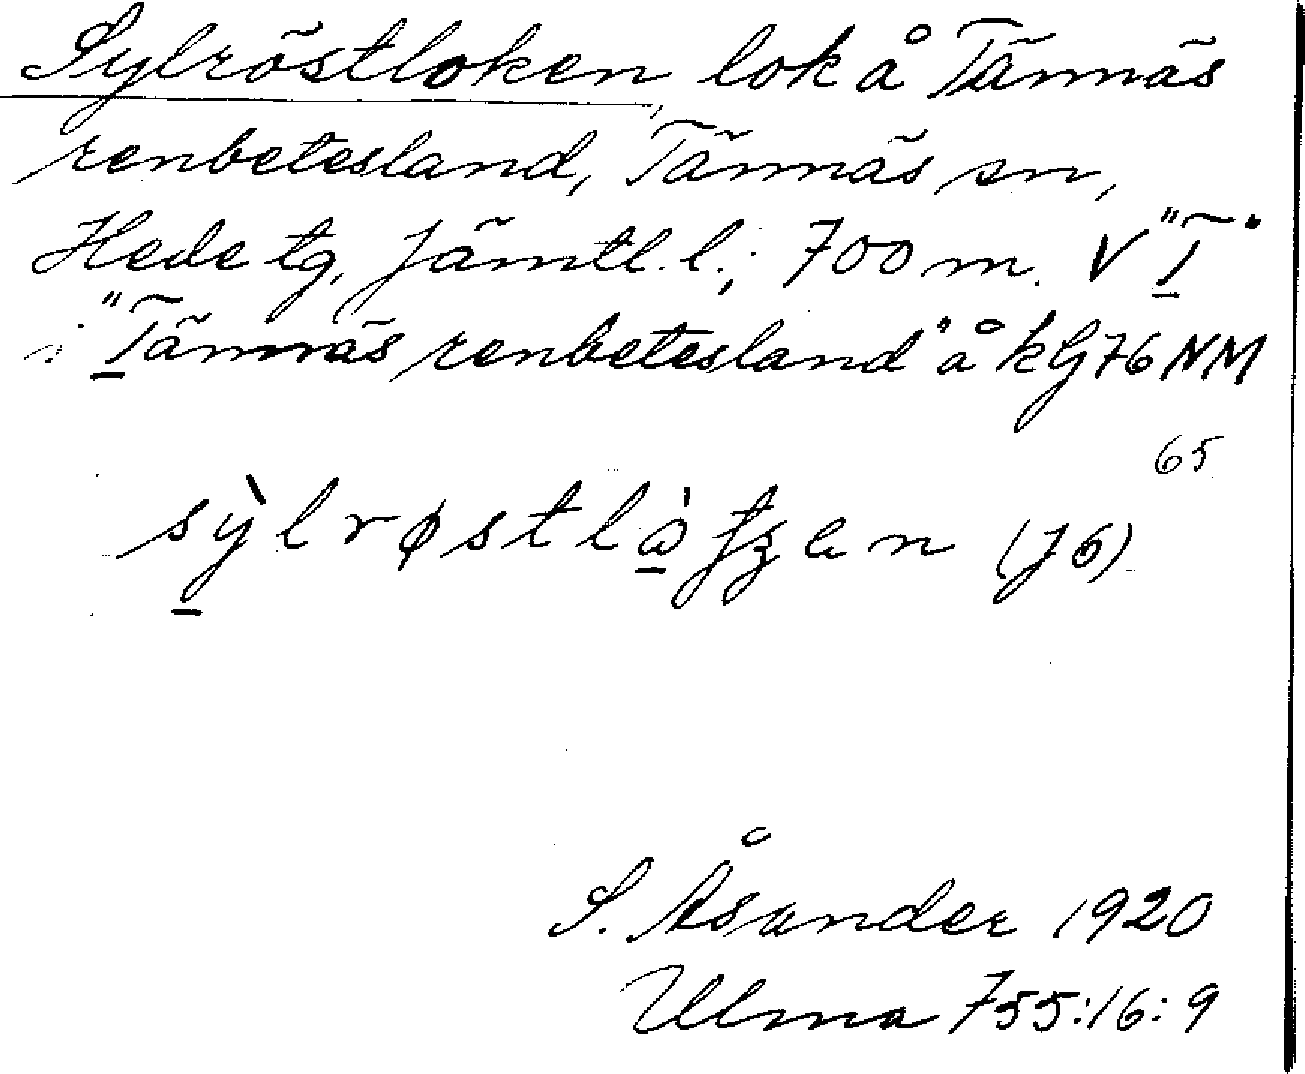 Sylröstloken, lok å Tännäs
renbetesland, Tännäs sn,
Hede tg, Jämtl. l.; 700 m. V "T"
i "Tännäs renbetesland" å kG 76 NM
65
sỳlrøstlòfzen (J6)
S. Åsander 1920
Ulma 755:16:9